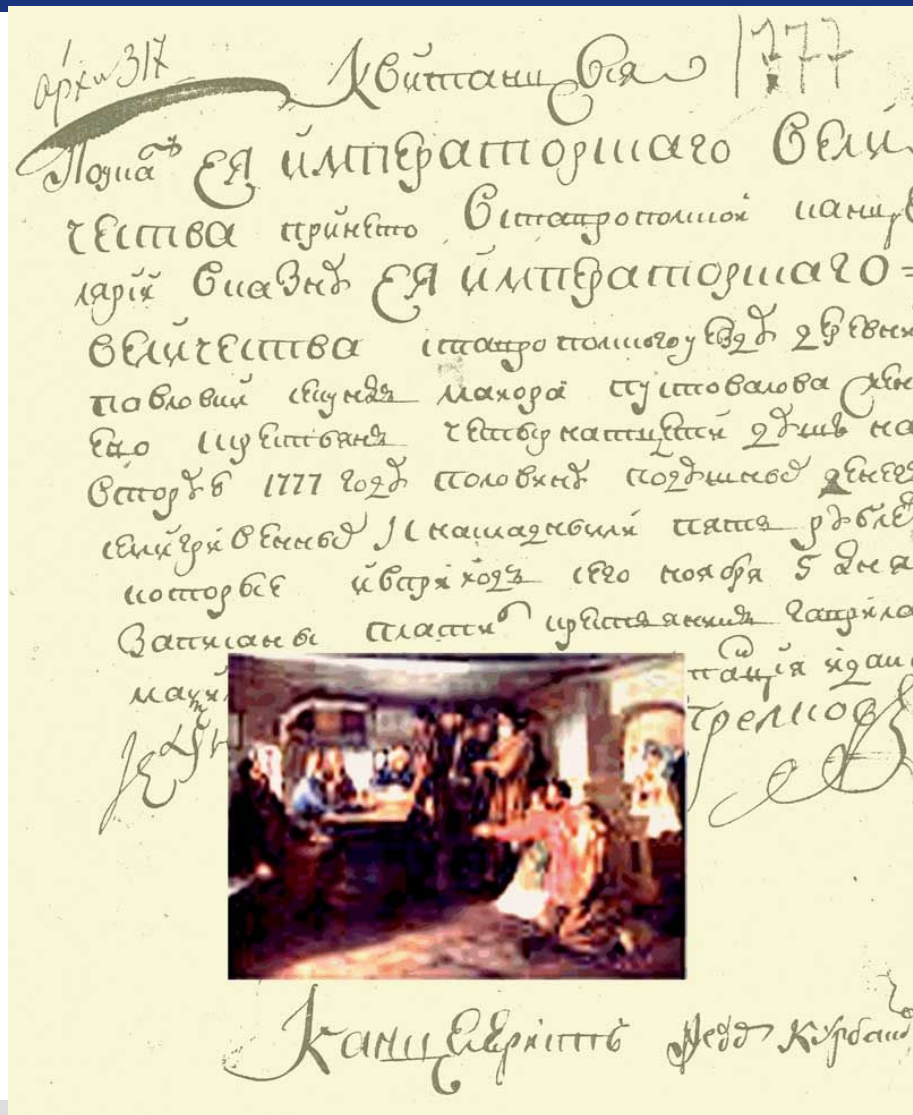 архи 317
Квитанция 1777
По указу ЕЯ ИМПЕРАТОРСКАГО ВЕЛИ
ЧЕСТВА принето Вставропольской канце
лярий Вказну ЕЯ ИМПЕРАТОРСКАГО =
ВЕЛИЧЕСТВА ставропольского уезду деревни
павловки секунд маиора пустовалова
крестьян четырнатцети душ на
Вторую 1777 году половину подушных денег
пять рублев
которые ивприход сего ноября 5 дня
Записаны платил крестьянин гаврила
Канцеляристъ Федор Курба